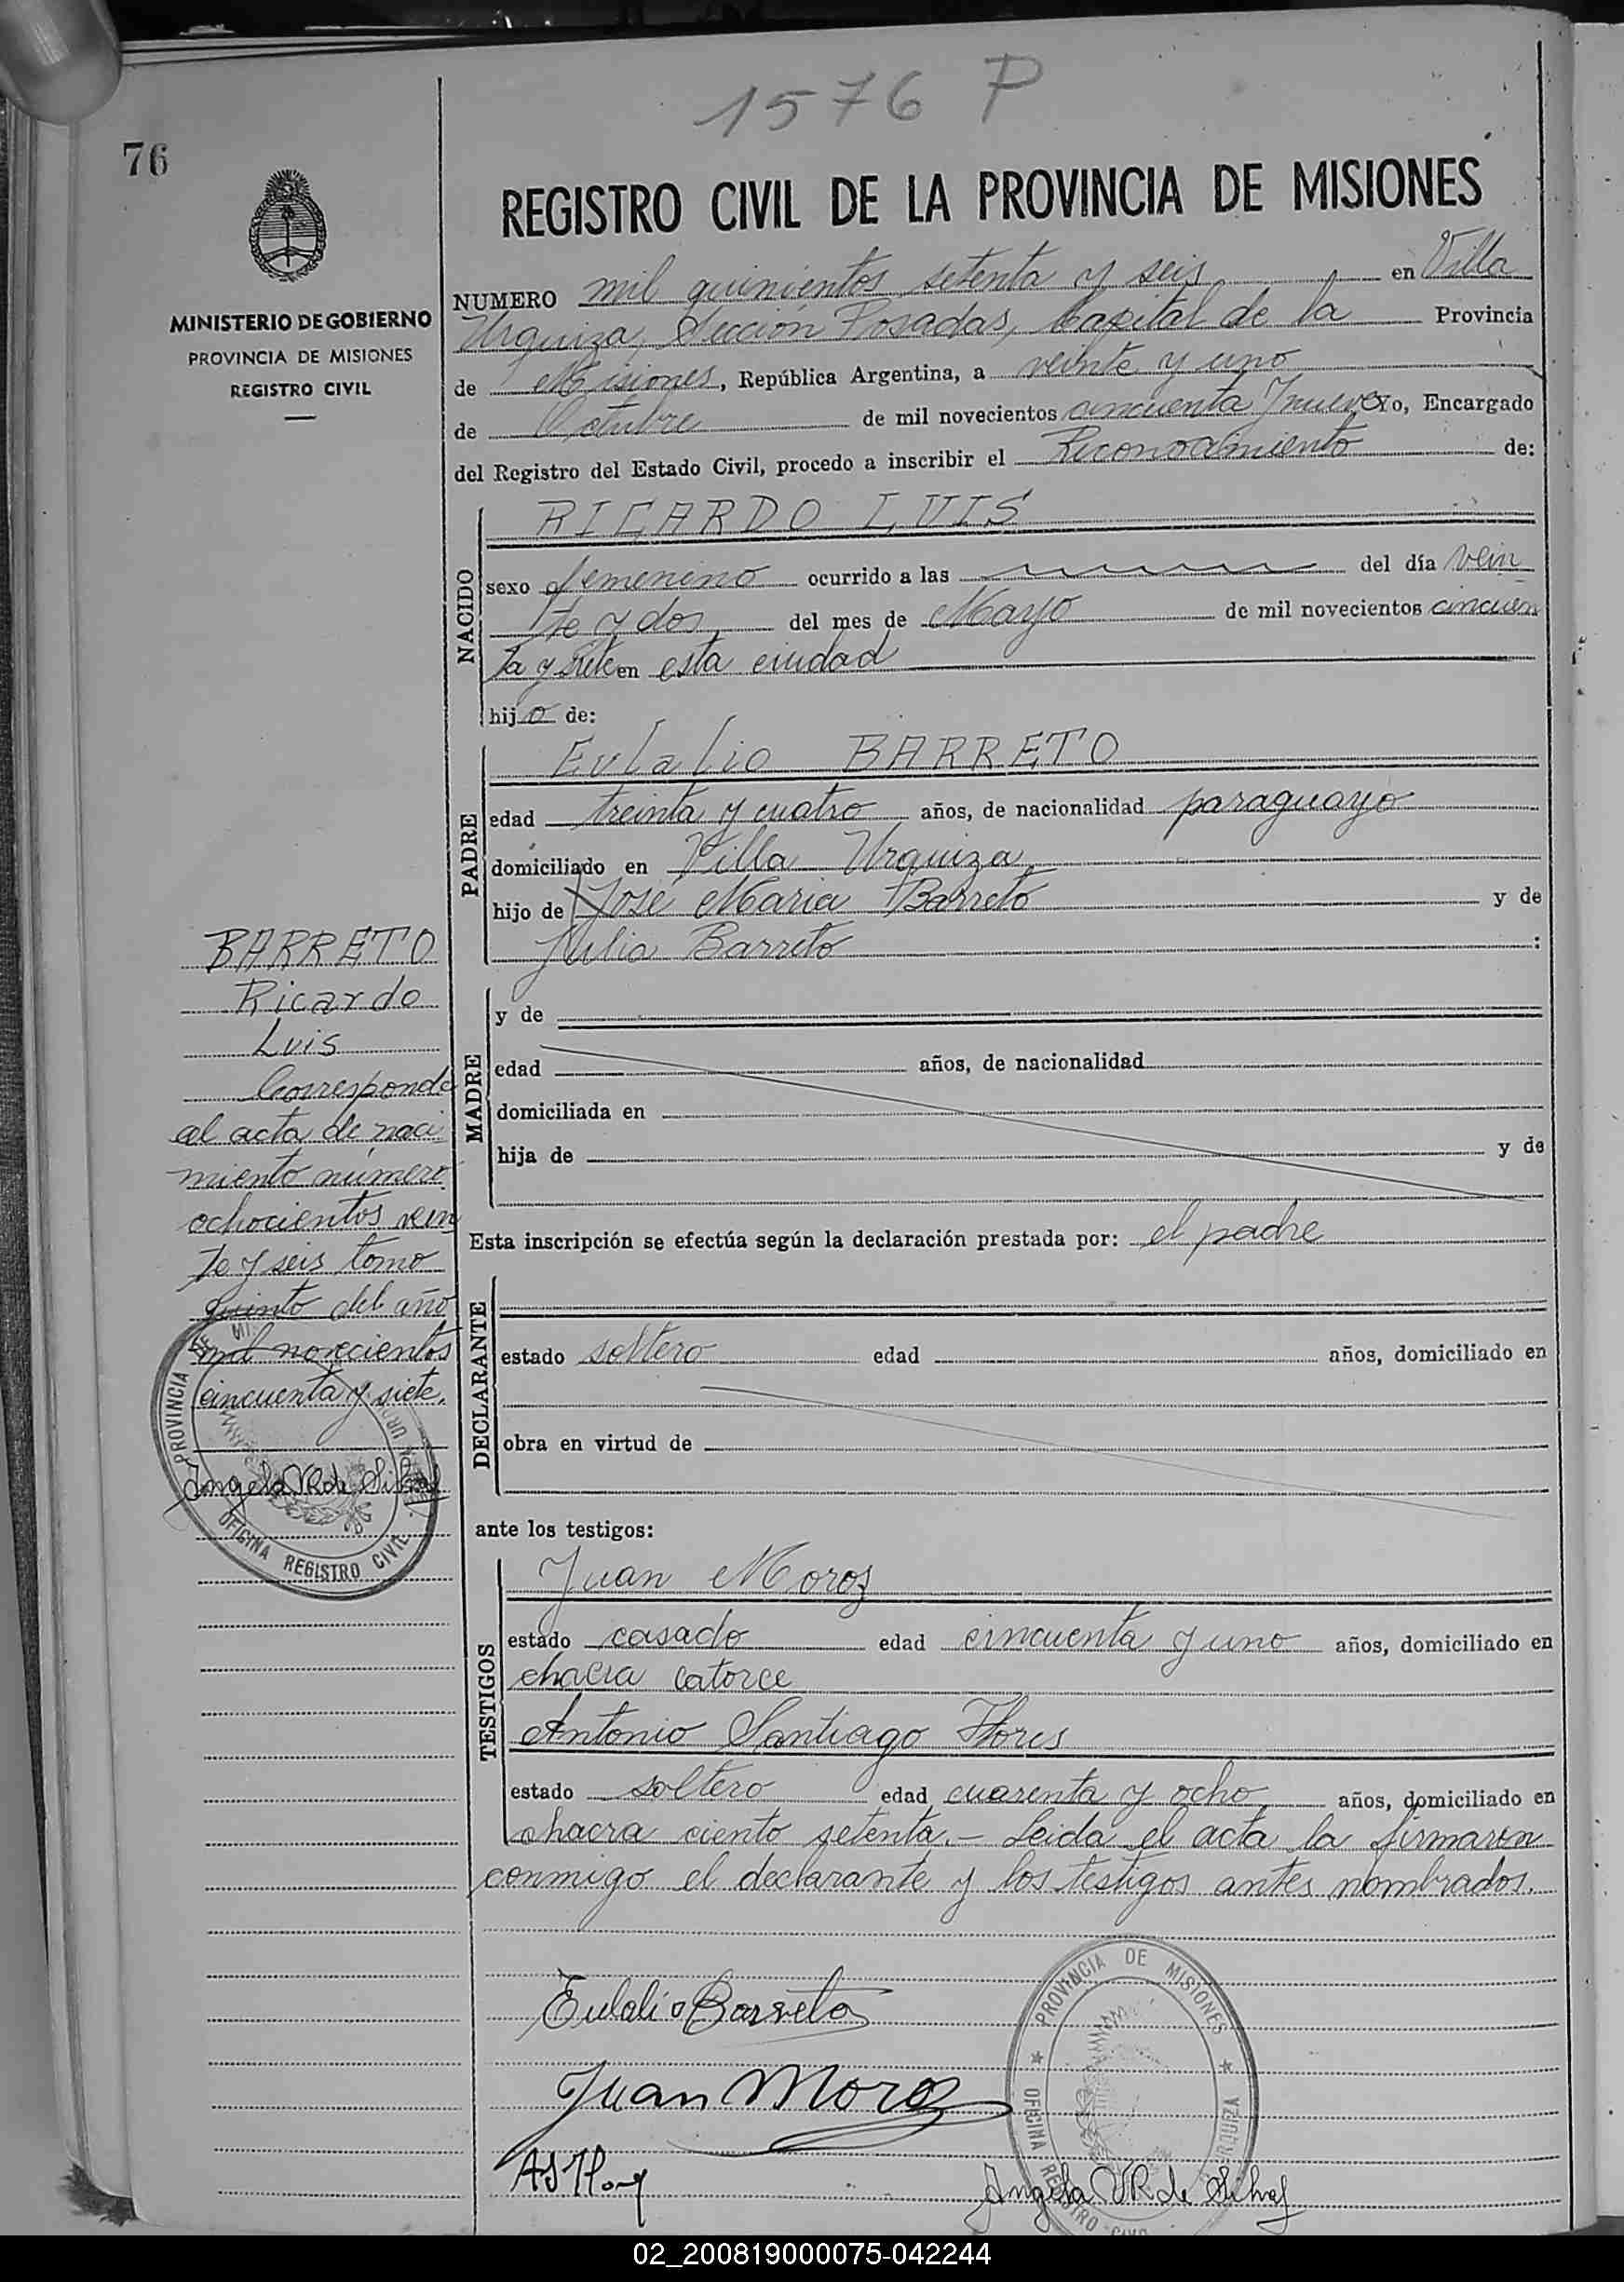 1576 P
76
REGISTRO CIVIL DE LA PROVINCIA DE MISIONES
MINISTERIO DE GOBIERNO
PROVINCIA DE MISIONES
REGISTRO CIVIL
NUMERO mil quinientos setenta y seis en Villa
Urquiza, Sección Posadas, Capital de la Provincia
de Misiones, República Argentina, a veinte y uno
de Octubre de mil novecientos cincuenta y nueve Yo, Encargado
del Registro del Estado Civil, procedo a inscribir el Reconocimiento de:
NACIDO
RICARDO LUIS
sexo femenino ocurrido a las del día vein
te y dos del mes de Mayo de mil novecientos cincuen
ta y siete en esta ciudad
hijo de:
PADRE
Eulalio BARRETO
edad treinta y cuatro años, de nacionalidad paraguayo
domiciliado en Villa Urquiza
hijo de José Maria Barreto y de
Julia Barreto :
MADRE
y de
edad años, de nacionalidad
domiciliada en
hija de y de
BARRETO
Ricardo
Luis
Corresponde
al acta de naci
miento número
ochocientos vein
te y seis tomo
quinto del año
mil novecientos
cincuenta y siete.
Angela VR de Silva
PROVINCIA DE MI
OFICINA REGISTRO CIVIL
Esta inscripción se efectúa según la declaración prestada por: el padre
DECLARANTE
estado soltero edad años, domiciliado en
obra en virtud de
ante los testigos:
TESTIGOS
Juan Moroz
estado casado edad cincuenta y uno años, domiciliado en
chacra catorce
Antonio Santiago Flores
estado soltero edad cuarenta y ocho años, domiciliado en
chacra ciento setenta.- Leida el acta la firmaron
conmigo el declarante y los testigos antes nombrados.
Eulalio Barreto
Juan Moroz
Angela VR de Silva
PROVINCIA DE MISIONES
OFICINA REGISTRO CIVIL
02_200819000075-042244